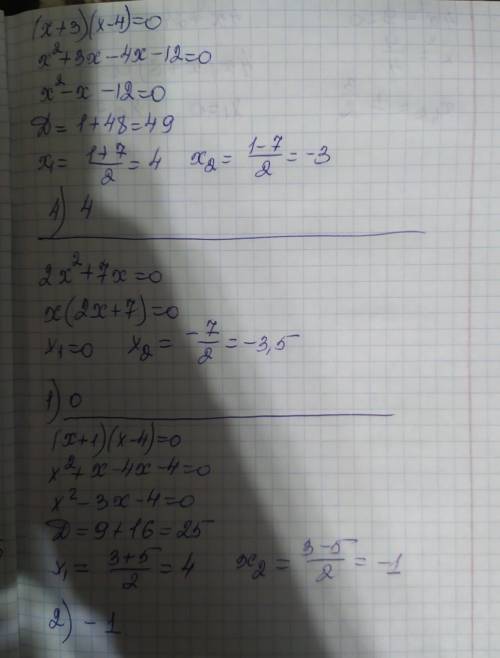 (x+3)(x-4)=0
x²+3x-4x-12=0
x²-x-12=0
D=1+48=49
x₁= (1+7)/2 = 4 x₂= (1-7)/2 = -3
4) 4
2x²+7x=0
x(2x+7)=0
x₁=0 x₂ = -7/2 = -3,5
1) 0
(x+1)(x-4)=0
x²+x-4x-4=0
x²-3x-4=0
D=9+16=25
x₁= (3+5)/2 = 4 x₂ = (3-5)/2 = -1
2) -1